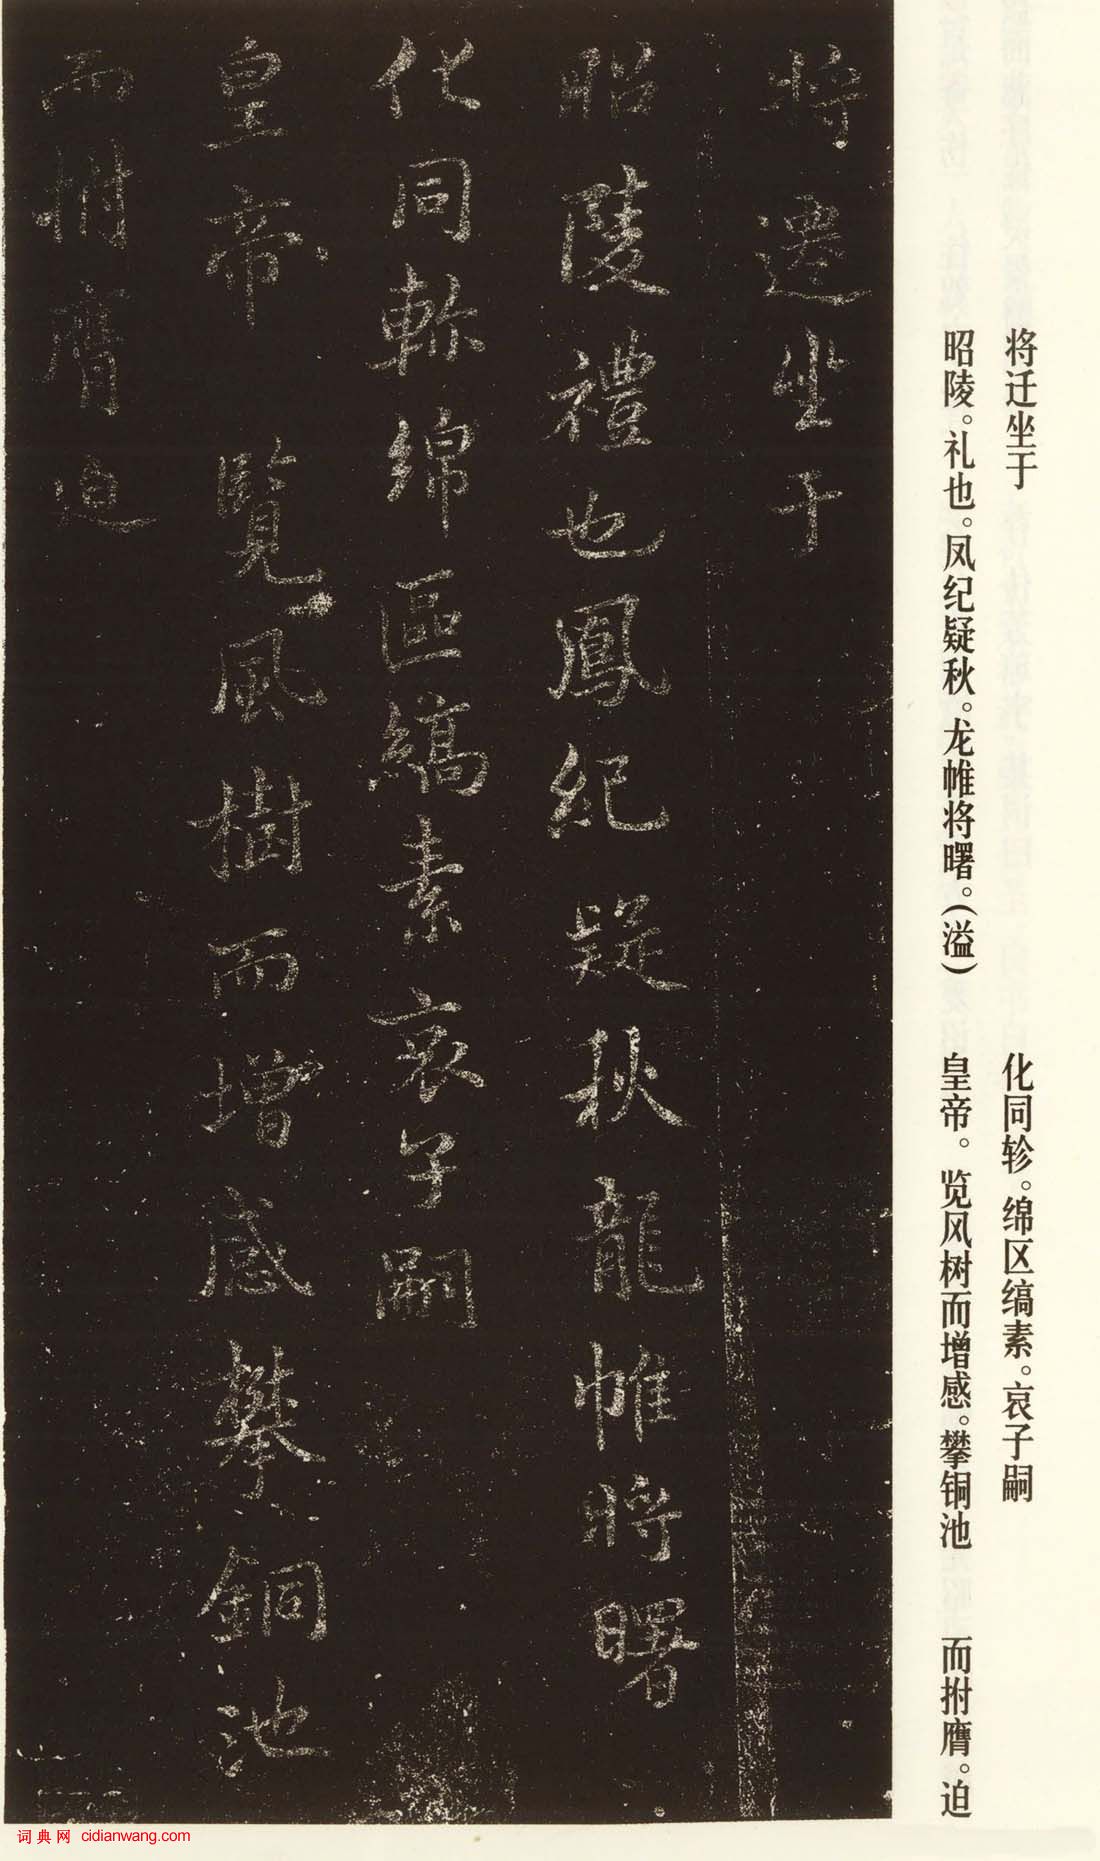 将迁坐于
昭陵。礼也。凤纪疑秋。龙帷将曙。(溢)
化同轸。绵区缟素。哀子嗣
皇帝。览风树而增感。攀铜池
而拊膺。迫
将遷坐于
昭陵禮也鳳紀疑秋龍帷將曙
化同軫綿區縞素哀子嗣
皇帝覽風樹而增感攀銅池
而拊膺迫
词典网 cidianwang.com